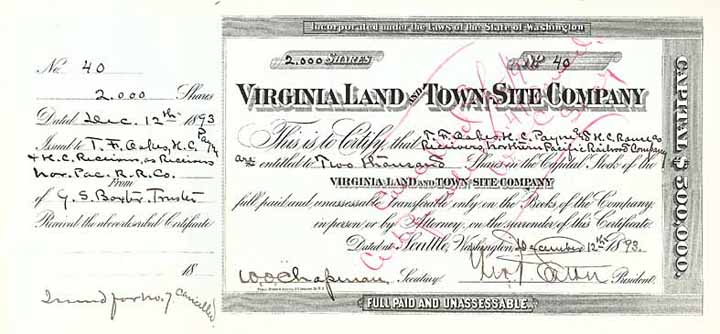 No. 40
2.000 Shares
Dated Dec. 12th 1893
Issued to T. F. Oakes, H. C. Payne
& H. C. as Receivers
Nor. Pac. R. R. Co.
From
G. S. Baxter, Trustee
Received the above described Certificate
18
Issued for No. 7 Cancelled
Incorporated under the Laws of the State of Washington
2.000 SHARES
No. 40
VIRGINIA LAND AND TOWN-SITE COMPANY
This is to Certify, that T. F. Oakes, H. C. Payne & H. C. Rouse as
Receivers, Northern Pacific Railroad Company
are entitled to Two thousand Shares in the Capital Stock of the
VIRGINIA LAND AND TOWN-SITE COMPANY
full paid and unassessable. Transferable only on the Books of the Company
in person or by Attorney, on the surrender of this Certificate.
Dated at Seattle, Washington, December 12th 1893.
W. O. Chapman Secretary.
President.
FULL PAID AND UNASSESSABLE.
CAPITAL $500,000.